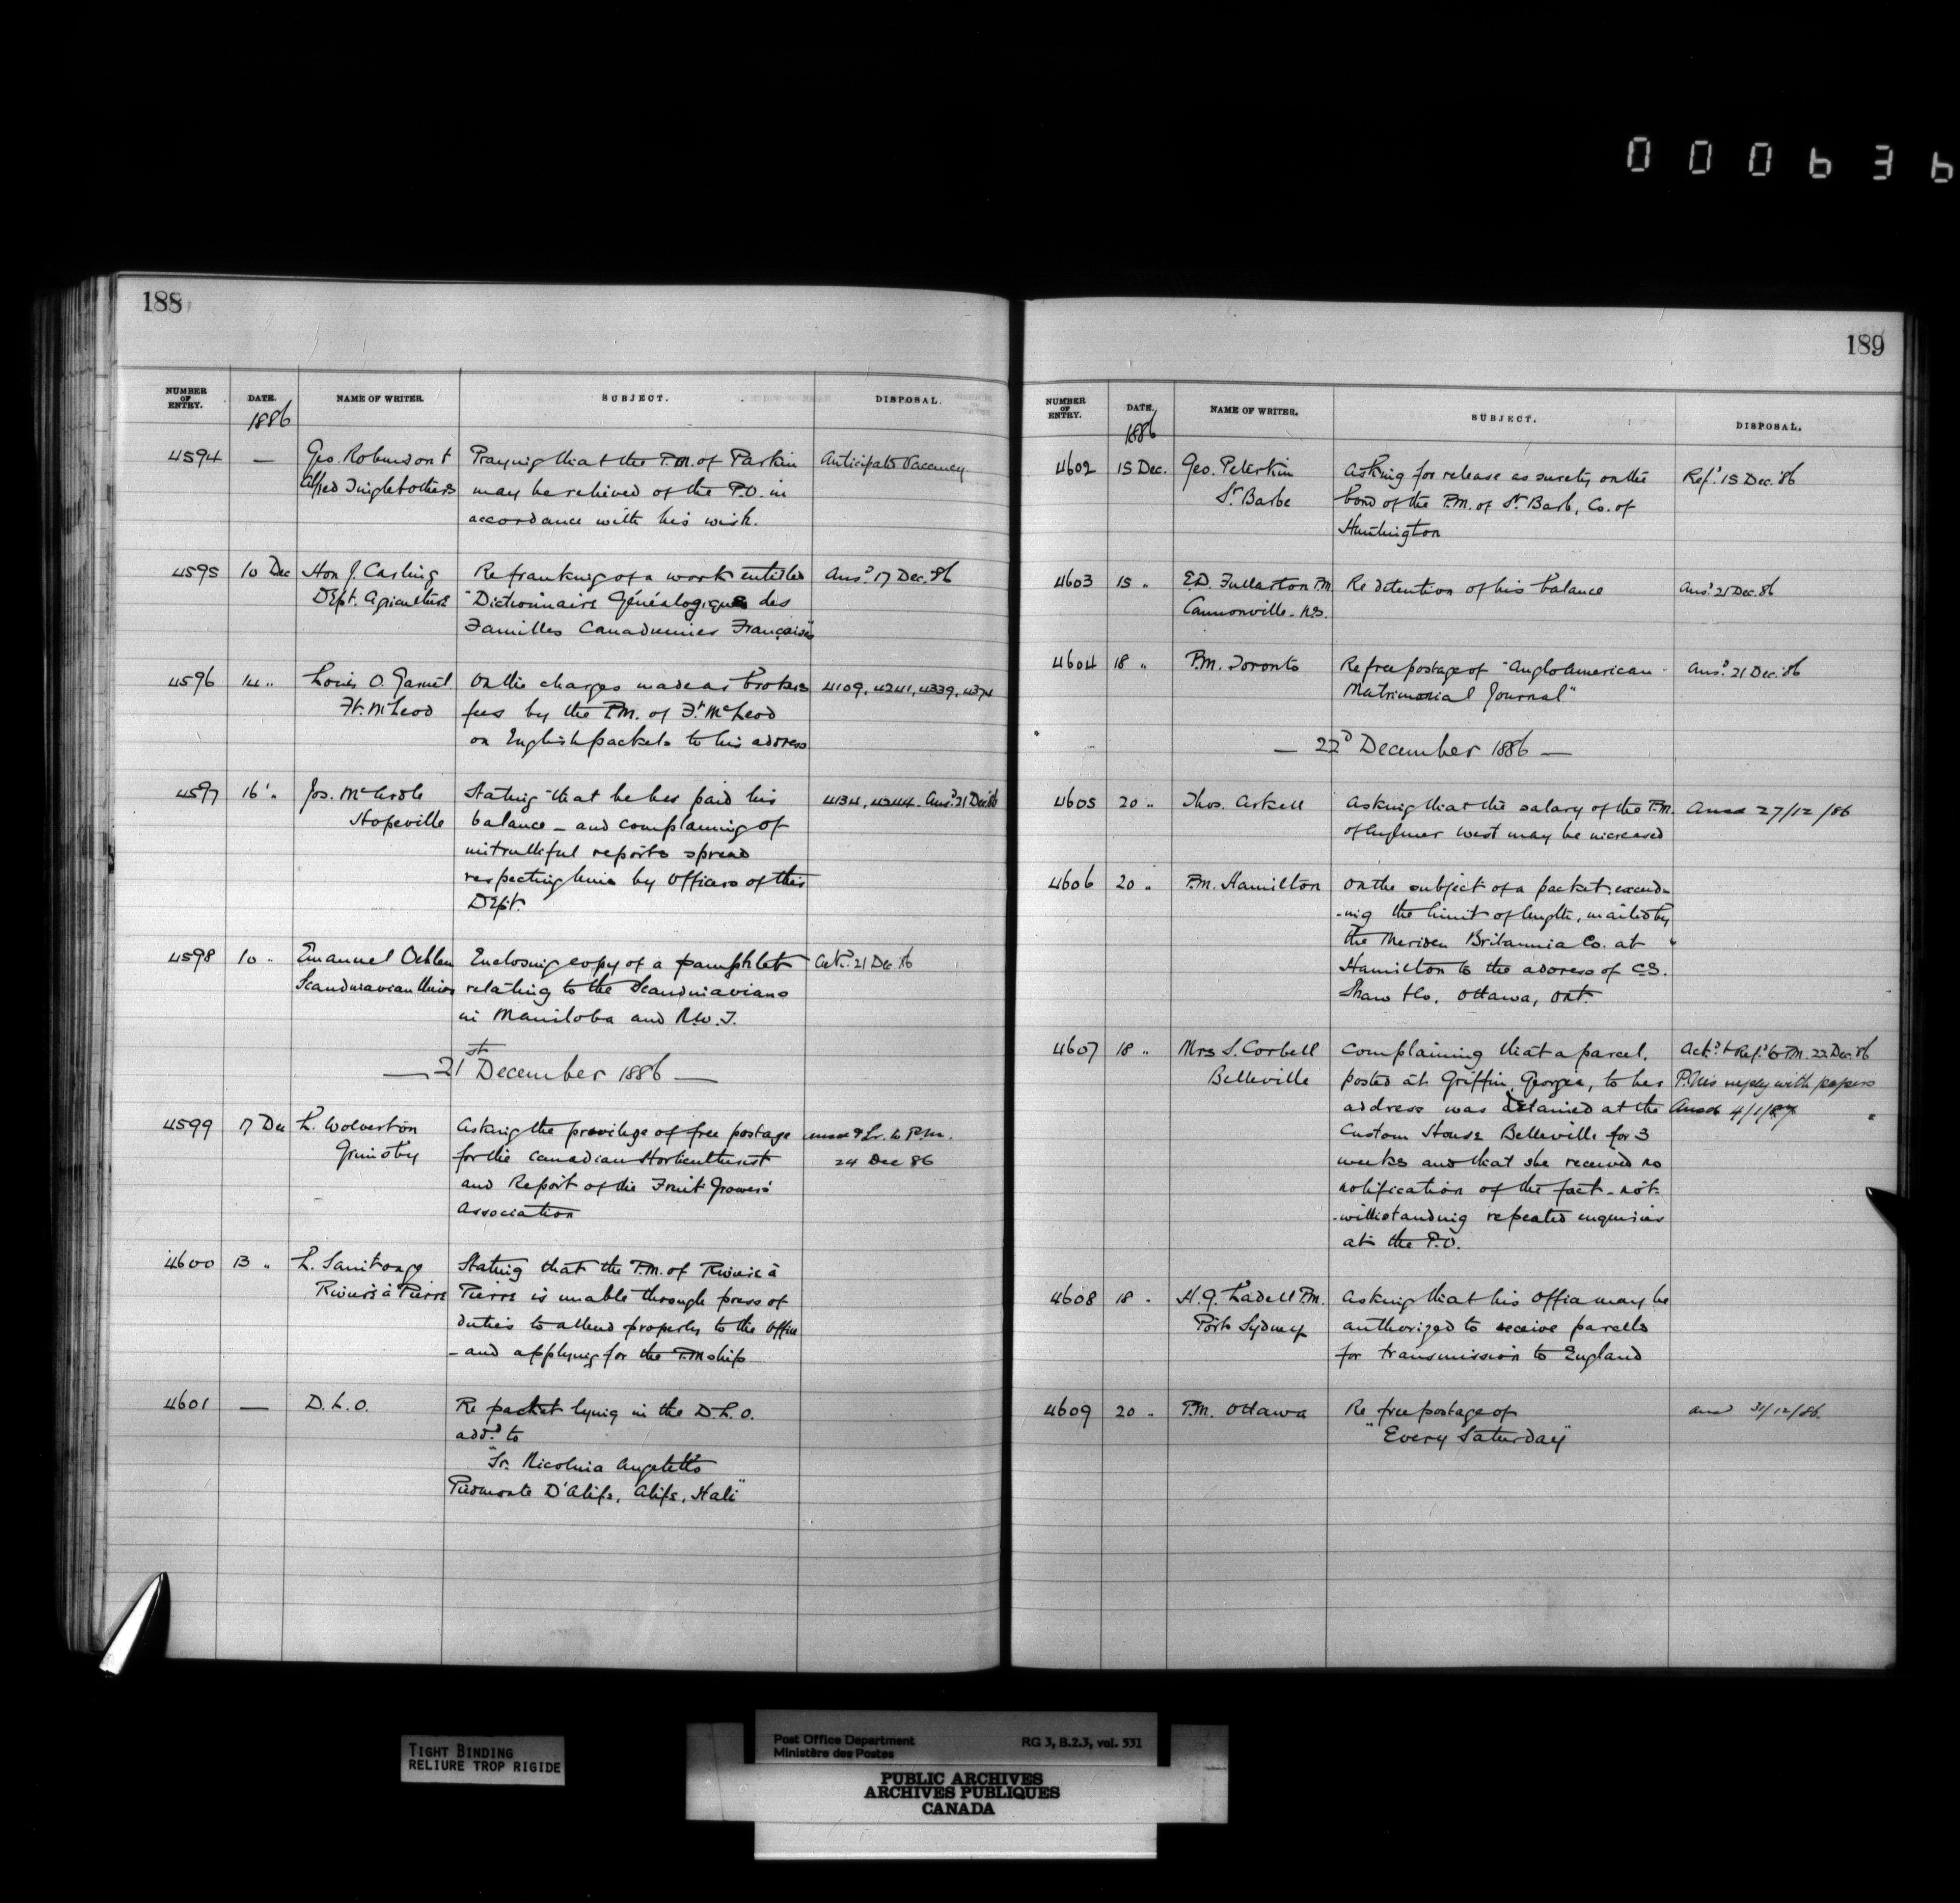 000636
188
NUMBER OF ENTRY. DATE. NAME OF WRITER. SUBJECT. DISPOSAL.
1886
4594 — Geo. Robinson & Praying that the P.M. of Parkin Anticipate Vacancy
Alfred & others may be relieved of the P.O. in
accordance with his wish.
4595 10 Dec Hon J. Carling Re franking of a work entitled Ansd. 17 Dec. 86
Dept. Agriculture "Dictionnaire Généalogique des
Familles Canadiennes Françaises"
4596 14 " Louis O. On the charges made as brokers 4109, 4241, 4339, 4374
Ft. McLeod fees by the P.M. of Ft. McLeod
on English packets to his address
4597 16 " Jos. McArdle Stating that he has paid his 4134, 4244. Ansd. 21 Dec 86
Hopeville balance – and complaining of
untruthful reports spread
respecting him by officers of this
Dept.
4598 10 " Emanuel Oehlen Enclosing copy of a pamphlet Ackd. 21 Dec. 86
Scandinavian Union relating to the Scandinavians
in Manitoba and N.W.T.
— 21st December 1886 —
4599 17 Dec L. Wolverton Asking the privilege of free postage & Lr. to P.M.
Grimsby for the Canadian Horticulturist 24 Dec 86
and Report of the Fruit Growers'
Association
4600 13 " L. Stating that the P.M. of Rivière à
Rivière à Pierre Pierre is unable through press of
duties to attend properly to the office
– and applying for the P.Mship
4601 — D.L.O. Re packet lying in the D.L.O.
add.d to
"Sr. Nicolina Angeletto
Piedmonte D'Alife, Alife, Itali"
189
NUMBER OF ENTRY. DATE. NAME OF WRITER. SUBJECT. DISPOSAL.
1886
4602 15 Dec. Geo. Peterkin Asking for release as surety on the Refd. 15 Dec. 86
St. Barbe bond of the P.M. of St. Barb, Co. of
Huntington
4603 15 " E.D. Fullarton P.M. Re detention of his balance Ansd. 21 Dec. 86
Cannonville. N.S.
4604 18 " P.M. Toronto Re free postage of "Anglo American Ansd. 21 Dec. 86
Matrimonial Journal"
— 22d December 1886 —
4605 20 " Thos. Arkell Asking that the salary of the P.M. Ansd 27/12/86
of Aylmer West may be increased
4606 20 " P.M. Hamilton On the subject of a packet exceed-
-ing the limit of length, mailed by
the Meriden Britannia Co. at
Hamilton to the address of C.S.
Shaw & Co. Ottawa, Ont.
4607 18 " Mrs S. Corbell Complaining that a parcel, Ackd. & Refd. to P.M. 22 Dec. 86
Belleville posted at Griffin, Georgia, to her P.M's reply with papers
address was detained at the Ansd 4/1/87
Custom House Belleville for 3
weeks and that she received no
notification of the fact – not-
-withstanding repeated enquiries
at the P.O.
4608 18 " H.G. Ladell P.M. Asking that his office may be
Port Sydney authorized to receive parcels
for transmission to England
4609 20 " P.M. Ottawa Re free postage of Ansd 31/12/86.
"Every Saturday"
TIGHT BINDING
RELIURE TROP RIGIDE
Post Office Department RG 3, B.2.3, vol. 531
Ministère des Postes
PUBLIC ARCHIVES
ARCHIVES PUBLIQUES
CANADA